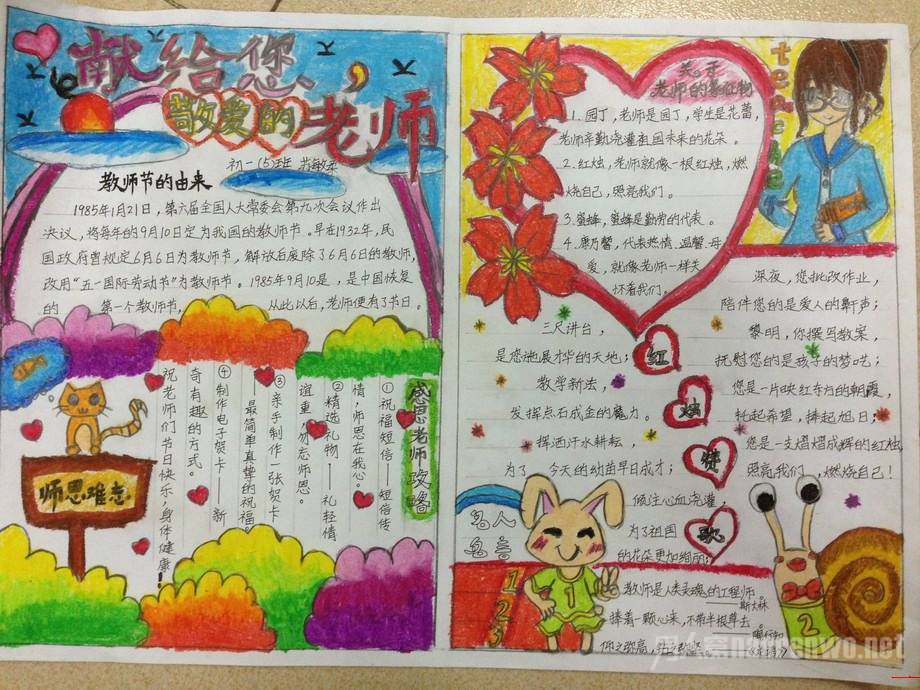 献给您、
敬爱的老师
初一(5)班
教师节的由来
1985年1月21日，第六届全国人大常委会第九次会议作出
决议，将每年的9月10日定为我国的教师节。早在1932年，民
国政府曾规定6月6日为教师节，解放后废除了6月6日的教师节，
改用“五一国际劳动节”为教师节。1985年9月10是，是中国恢复
的 第一个教师节， 从此以后，老师便有了节日。
感恩老师攻略
①祝福短信——短信传
情，师恩在我心！
②精选礼物——礼轻情
谊重，勿忘师恩。
③亲手制作一张贺卡
——最简单真挚的祝福
④制作电子贺卡——新
奇有趣的方式。
祝老师们节日快乐、身体健康！
师恩难忘
关于
老师的象征物
1.园丁，老师是园丁，学生是花蕾，
老师辛勤浇灌祖国未来的花朵。
2.红烛，老师就像一根红烛，燃
烧自己，照亮我们。
3.蜜蜂，蜜蜂是勤劳的代表。
4.康乃馨，代表热情、温馨、母
爱，就像老师一样关
怀着我们。
teacher
红烛赞歌
三尺讲台，
是您施展才华的天地；
教学新法，
发挥点石成金的魔力。
挥洒汗水耕耘，
为了 今天的幼苗早日成才；
倾注心血浇灌，
为了祖国
的花朵更加绚丽；
深夜，您批改作业，
陪伴您的是爱人的鼾声；
黎明，你撰写教案，
抚慰您的是孩子的梦呓；
您是一片映红东方的朝霞，
托起希望，捧起旭日；
您是一支熠熠成辉的红烛，
照亮我们，燃烧自己！
名人
名言
1
2
3
1
2
教师是人类灵魂的工程师。
斯大林
捧着一颗心来，不带半根草去。
陶行知
仰之弥高，钻之弥坚。
nanrenwo.net